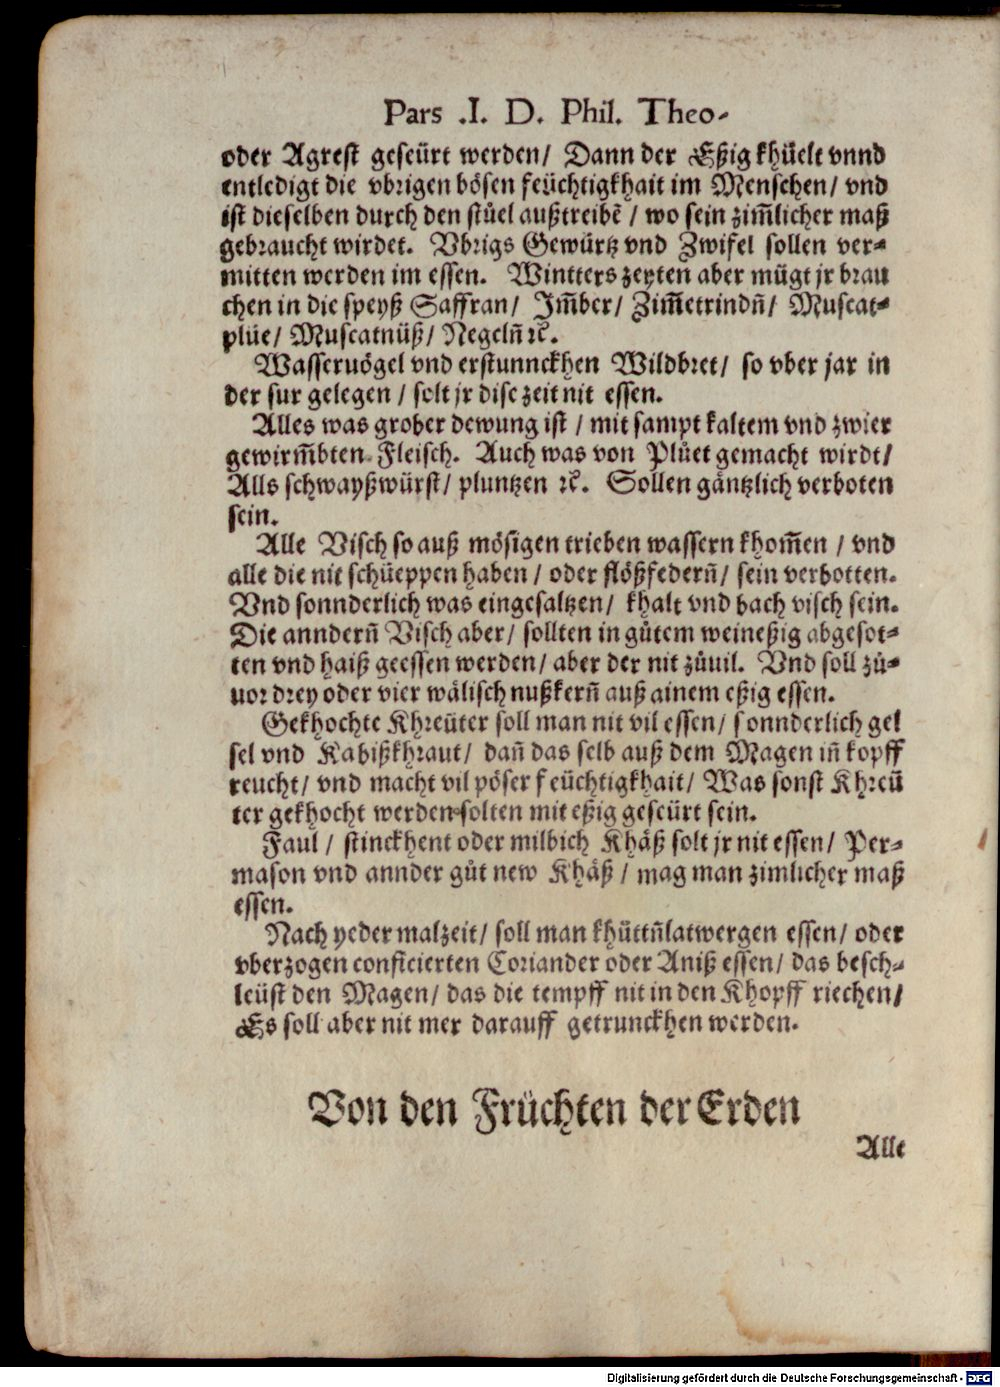 Pars .I. D. Phil. Theo-
oder Agrest geseürt werden/ Dann der Eßig khüelt vnnd
entledigt die vbrigen bösen feüchtigkhait im Menschen/ vnd
ist dieselben durch den stůel außtreibē / wo sein zim̃licher maß
gebraucht wirdet. Vbrigs Gewürtz vnd Zwifel sollen ver-
mitten werden im essen. Wintters zeyten aber mügt jr brau
chen in die speyß Saffran/ Im̃ber/ Zim̃etrindñ/ Muscat-
plüe/ Muscatnüß/ Negelñ ꝛc.
Wasseruögel vnd erstunnckhen Wildbret/ so vber jar in
der sur gelegen / solt jr dise zeit nit essen.
Alles was grober dewung ist / mit sampt kaltem vnd zwier
gewirm̃bten Fleisch. Auch was von Plůet gemacht wirdt/
Alls schwayßwürst/ pluntzen ꝛc. Sollen gäntzlich verboten
sein.
Alle Visch so auß mösigen trieben wassern khom̃en / vnd
alle die nit schüeppen haben / oder flößfederñ/ sein verbotten.
Vnd sonnderlich was eingesaltzen/ khalt vnd bach visch sein.
Die annderñ Visch aber/ sollten in gůtem weineßig abgesot-
ten vnd haiß geessen werden/ aber der nit zůuil. Vnd soll zů-
uor drey oder vier wälisch nußkerñ auß ainem eßig essen.
Gekhochte Khreüter soll man nit vil essen/ sonnderlich gel
sel vnd Kabißkhraut/ dañ das selb auß dem Magen iñ kopff
reucht/ vnd macht vil pöser feüchtigkhait/ Was sonst Khreü
ter gekhocht werden solten mit eßig geseürt sein.
Faul / stinckhent oder milbich Khäß solt jr nit essen/ Per-
mason vnd annder gůt new Khäß / mag man zimlicher maß
essen.
Nach yeder malzeit/ soll man khüttñlatwergen essen/ oder
vberzogen conficierten Coriander oder Aniß essen/ das besch-
leüst den Magen/ das die tempff nit in den Khopff riechen/
Es soll aber nit mer darauff getrunckhen werden.
Von den Früchten der Erden
Alle
Digitalisierung gefördert durch die Deutsche Forschungsgemeinschaft - DFG